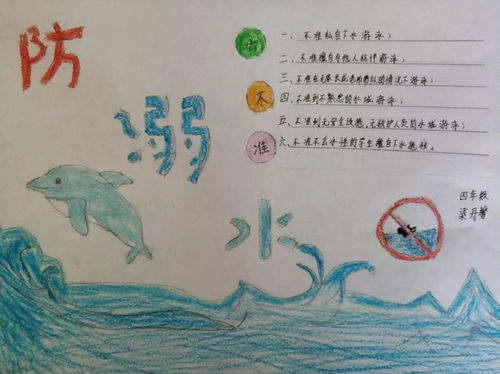 防
溺
水
六
不
准
一、不准私自下水游泳；
二、不准擅自与他人结伴游泳；
三、不准在无家长或老师带队的情况下游泳；
四、不准到不熟悉的水域游泳；
五、不准到无安全设施、无救护人员的水域游泳；
六、不准不会水性的学生擅自下水施救。
四年级